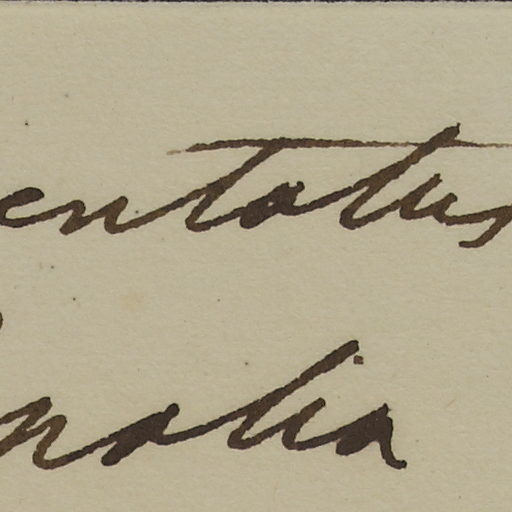 entatus
nalia